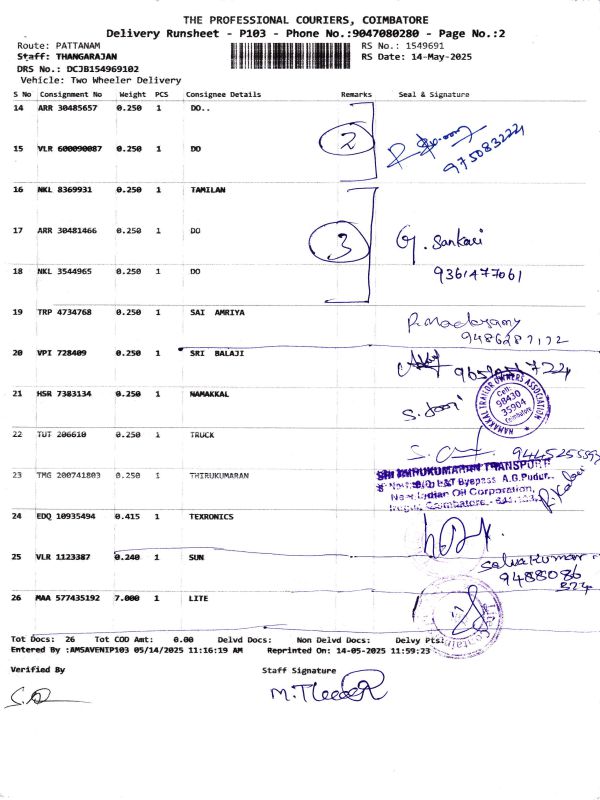 THE PROFESSIONAL COURIERS, COIMBATORE
Delivery Runsheet - P103 - Phone No.:9047080280 - Page No.:2
Route: PATTANAM RS No.: 1549691
Staff: THANGARAJAN RS Date: 14-May-2025
DRS No.: DCJB154969102
Vehicle: Two Wheeler Delivery
S No Consignment No Weight PCS Consignee Details Remarks Seal & Signature
14 ARR 30485657 0.250 1 DO..
2
15 VLR 600090087 0.250 1 DO
16 NKL 8369931 0.250 1 TAMILAN
17 ARR 30481466 0.250 1 DO
3 G. Sankari
18 NKL 3544965 0.250 1 DO 9361477061
19 TRP 4734768 0.250 1 SAI AMRIYA
20 VPI 728409 0.250 1 SRI BALAJI
21 HSR 7383134 0.250 1 NAMAKKAL
NAMAKKAL TRAILOR OWNERS ASSOCIATION Cell: 98430 35904 Coimbatore
22 TUT 206610 0.250 1 TRUCK
23 TMG 200741803 0.250 1 THIRUKUMARAN
SRI THIRUKUMARAN TRANSPORT
L&T Byepass A.G.Pudur,
Near Indian Oil Corporation,
24 EDQ 10935494 0.415 1 TEXRONICS
25 VLR 1123387 0.240 1 SUN
Selvakumar
9488086
26 MAA 577435192 7.000 1 LITE
Tot Docs: 26 Tot COD Amt: 0.00 Delvd Docs: Non Delvd Docs: Delvy Pts:
Entered By :AMSAVENIP103 05/14/2025 11:16:19 AM Reprinted On: 14-05-2025 11:59:23
Verified By Staff Signature